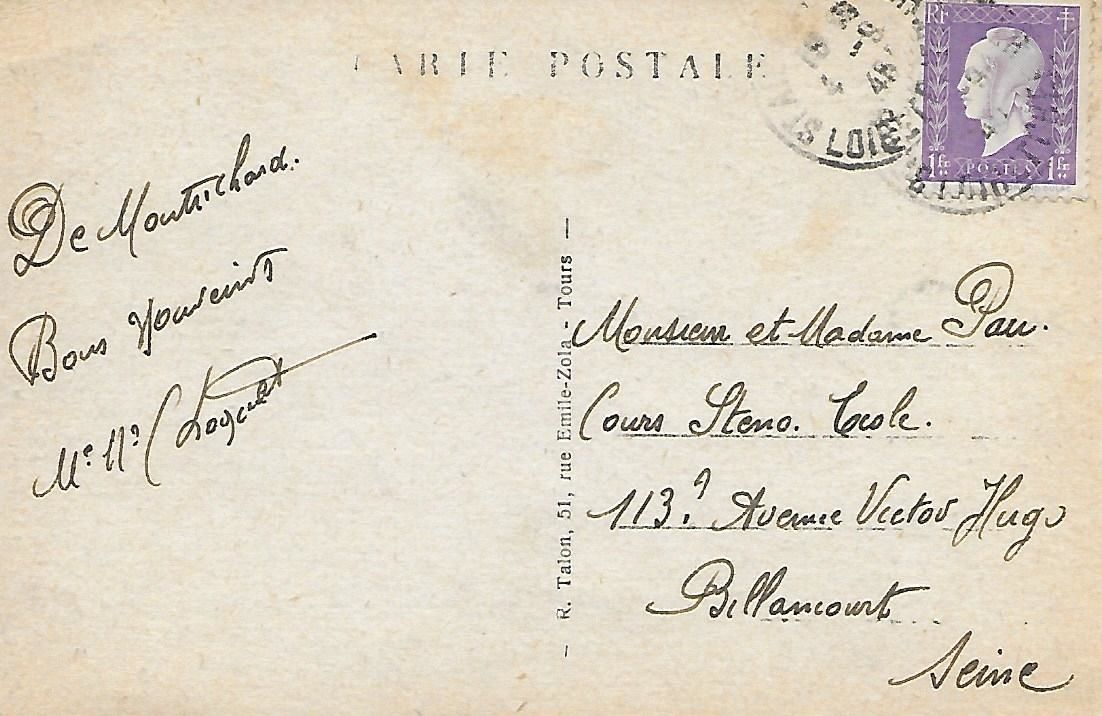 CARTE POSTALE
RF
1fr POSTES 1fr
De Montrichard.
Bons Souvenirs
Monsieur et Madame Pau.
Cours Steno. Ecole.
113? Avenue Victor Hugo
Billancourt
Seine
— R. Talon, 51, rue Emile-Zola - Tours —